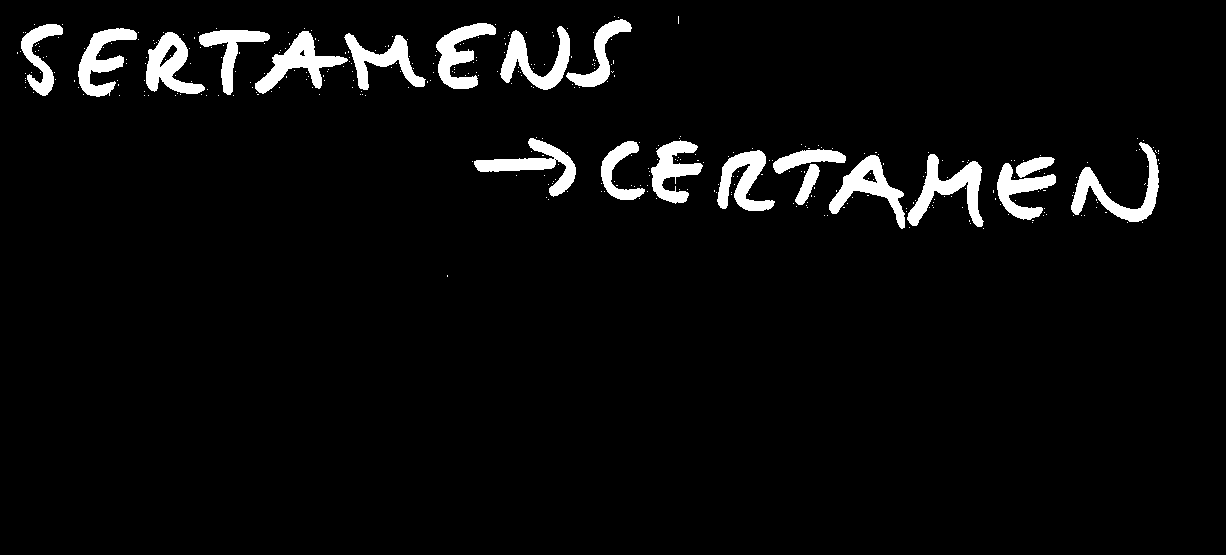 SERTAMENS
→ CERTAMEN